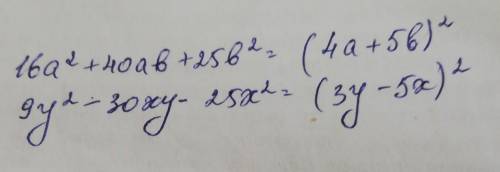 16a² + 40ab + 25b² = (4a + 5b)²
9y² - 30xy - 25x² = (3y - 5x)²